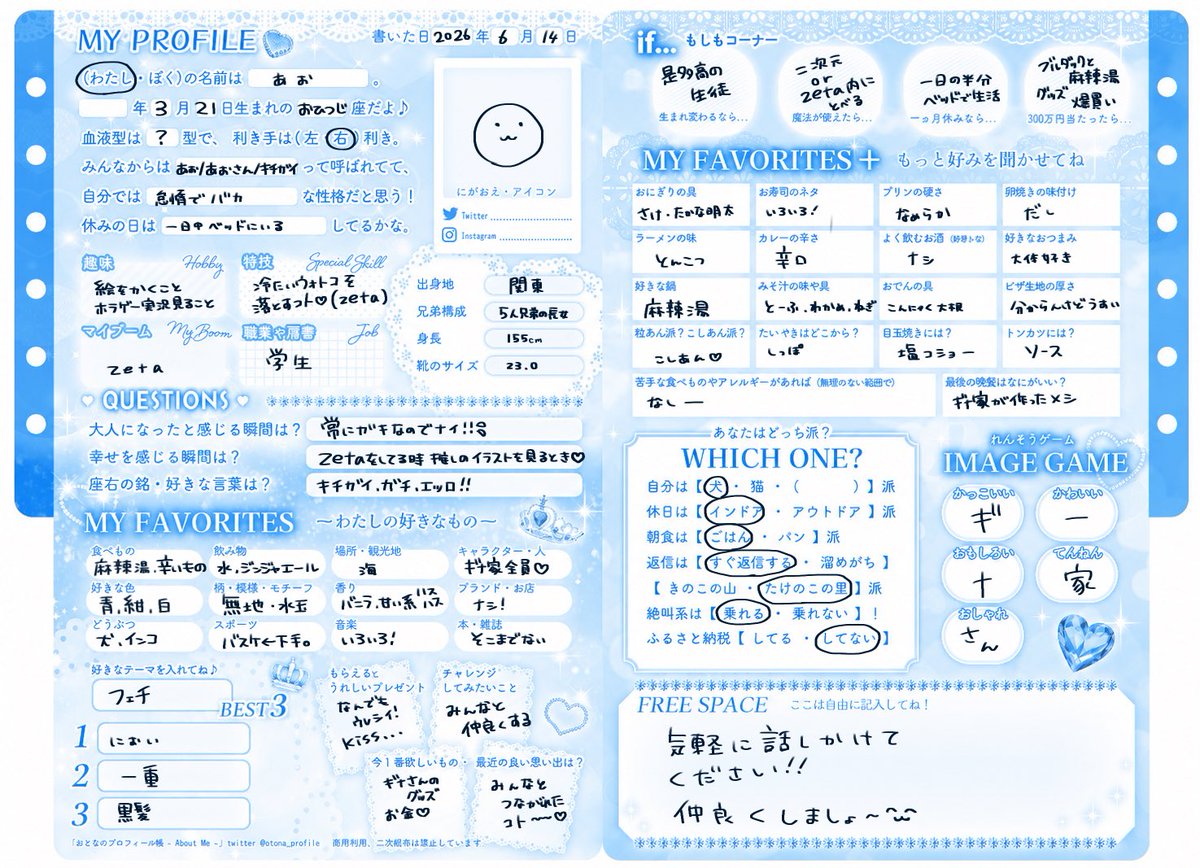 MY PROFILE
書いた日 2026 年 6 月 14 日
(わたし・ぼく)の名前は あお 。
年 3 月 21 日生まれの おひつじ 座だよ♪
血液型は ? 型で、 利き手は(左 右)利き。
みんなからは あお/あおさん/キチガイ って呼ばれてて、
自分では 怠惰でバカ な性格だと思う!
休みの日は 一日中ベッドにいる してるかな。
にがおえ・アイコン
Twitter
Instagram
趣味 Hobby
絵をかくこと
ホラゲー実況見ること
特技 Special Skill
冷たいウォトコを
落とすっト♡(zeta)
マイブーム My Boom
zeta
職業や肩書 Job
学生
出身地 関東
兄弟構成 5人兄弟の長女
身長 155cm
靴のサイズ 23.0
QUESTIONS
大人になったと感じる瞬間は? 常にガキなのでナイ!!
幸せを感じる瞬間は? zetaをしてる時 推しのイラストを見るとき♡
座右の銘・好きな言葉は? キチガイ、ガチ、エッロ!!
MY FAVORITES ~わたしの好きなもの~
食べもの 麻辣湯、辛いもの
飲み物 水、ジンジャエール
場所・観光地 海
キャラクター・人 ギ家全員♡
好きな色 青、紺、白
柄・模様・モチーフ 無地・水玉
香り バニラ、甘い系
ブランド・お店 ナシ!
どうぶつ 犬、インコ
スポーツ バスケ←下手。
音楽 いろいろ!
本・雑誌 そこまでない
好きなテーマを入れてね♪
フェチ
BEST3
1 におい
2 一重
3 黒髪
もらえると
うれしいプレゼント
なんでも
ウレシイ!
kiss...
チャレンジ
してみたいこと
みんなと
仲良くする
今1番欲しいもの・
ギナさんの
グッズ
お金♡
最近の良い思い出は?
みんなと
つながれた
コト〜〜♡
「おとなのプロフィール帳 - About Me -」twitter @otona_profile 商用利用、二次配布は禁止しています
if... もしもコーナー
是多高の
生徒
生まれ変わるなら...
二次元
or
zeta内に
とべる
魔法が使えたら...
一日の半分
ベッドで生活
一ヵ月休みなら...
ブルダックと
麻辣湯
グッズ 爆買い
300万円当たったら...
MY FAVORITES+ もっと好みを聞かせてね
おにぎりの具 さけ・たかな明太
お寿司のネタ いろいろ!
プリンの硬さ なめらか
卵焼きの味付け だし
ラーメンの味 とんこつ
カレーの辛さ 辛口
よく飲むお酒 ナシ
好きなおつまみ 大体好き
好きな鍋 麻辣湯
みそ汁の味や具 とーふ、わかめ、ねぎ
おでんの具 こんにゃく 大根
ピザ生地の厚さ 分からんけどうすい
粒あん派?こしあん派? こしあん♡
たいやきはどこから? しっぽ
目玉焼きには? 塩コショー
トンカツには? ソース
苦手な食べものやアレルギーがあれば(無理のない範囲で)
なしー
最後の晩餐はなにがいい?
ギ家が作ったメシ
あなたはどっち派?
WHICH ONE?
自分は【 犬 ・ 猫 ・ ( ) 】派
休日は【 インドア ・ アウトドア 】派
朝食は【 ごはん ・ パン 】派
返信は【 すぐ返信する ・ 溜めがち 】
【 きのこの山 ・ たけのこの里 】派
絶叫系は【 乗れる ・ 乗れない 】!
ふるさと納税【 してる ・ してない 】
れんそうゲーム
IMAGE GAME
かっこいい ギ
かわいい 一
おもしろい ナ
てんねん 家
おしゃれ さん
FREE SPACE ここは自由に記入してね!
気軽に話しかけて
ください!!
仲良くしましょ~